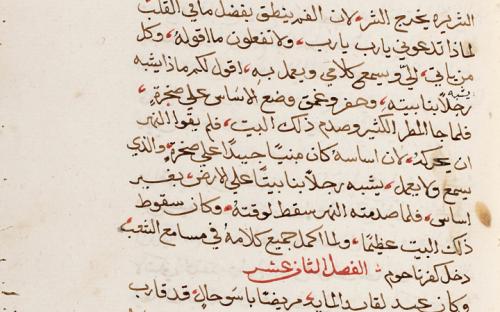 الشريره يخرج الشر، لان الفم ينطق بفضل ما في القلب
لماذا تدعوني يارب يارب، ولا تفعلون ما اقوله، وكل
من ياتي، اليّ ويسمع كلامي ويعمل به، اقول لكم ماذا يشبه
يشبه
رجلاً بنا بيته، وحفر وعمق ووضع الاساس علي صخرةٍ،
فلما جا المطر الكثير وصدم ذلك البيت، فلم يقوا النهر
ان يحركه، لان اساسه كان مبنياً جيداً علي صخرةٍ، والذي
يسمع ولا يعمل، يشبه رجلاً بنا بيتاً علي الارض، بغير
اساس، فلما صدمته النهر سقط لوقته، وكان سقوط
ذلك البيت عظيماً، ولما اكمل جميع كلامه في مسامع الشعب
دخل كفرناحوم الفصل الثاني عشر
وكان عبد لقايد الماية، مريضاً باسو حال، قد قارب